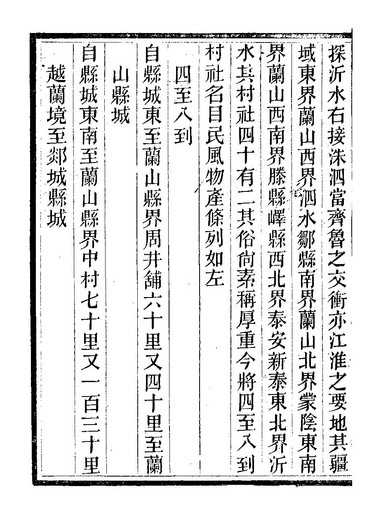 探沂水右接洙泗當齊魯之交衝亦江淮之要地其疆
域東界蘭山西界泗水鄒縣南界蘭山北界蒙陰東南
界蘭山西南界滕縣嶧縣西北界泰安新泰東北界沂
水其村社四十有二其俗尙素稱厚重今將四至八到
村社名目民風物產條列如左
四至八到
自縣城東至蘭山縣界周井舖六十里又四十里至蘭
山縣城
自縣城東南至蘭山縣界中村七十里又一百三十里
越蘭境至郯城縣城